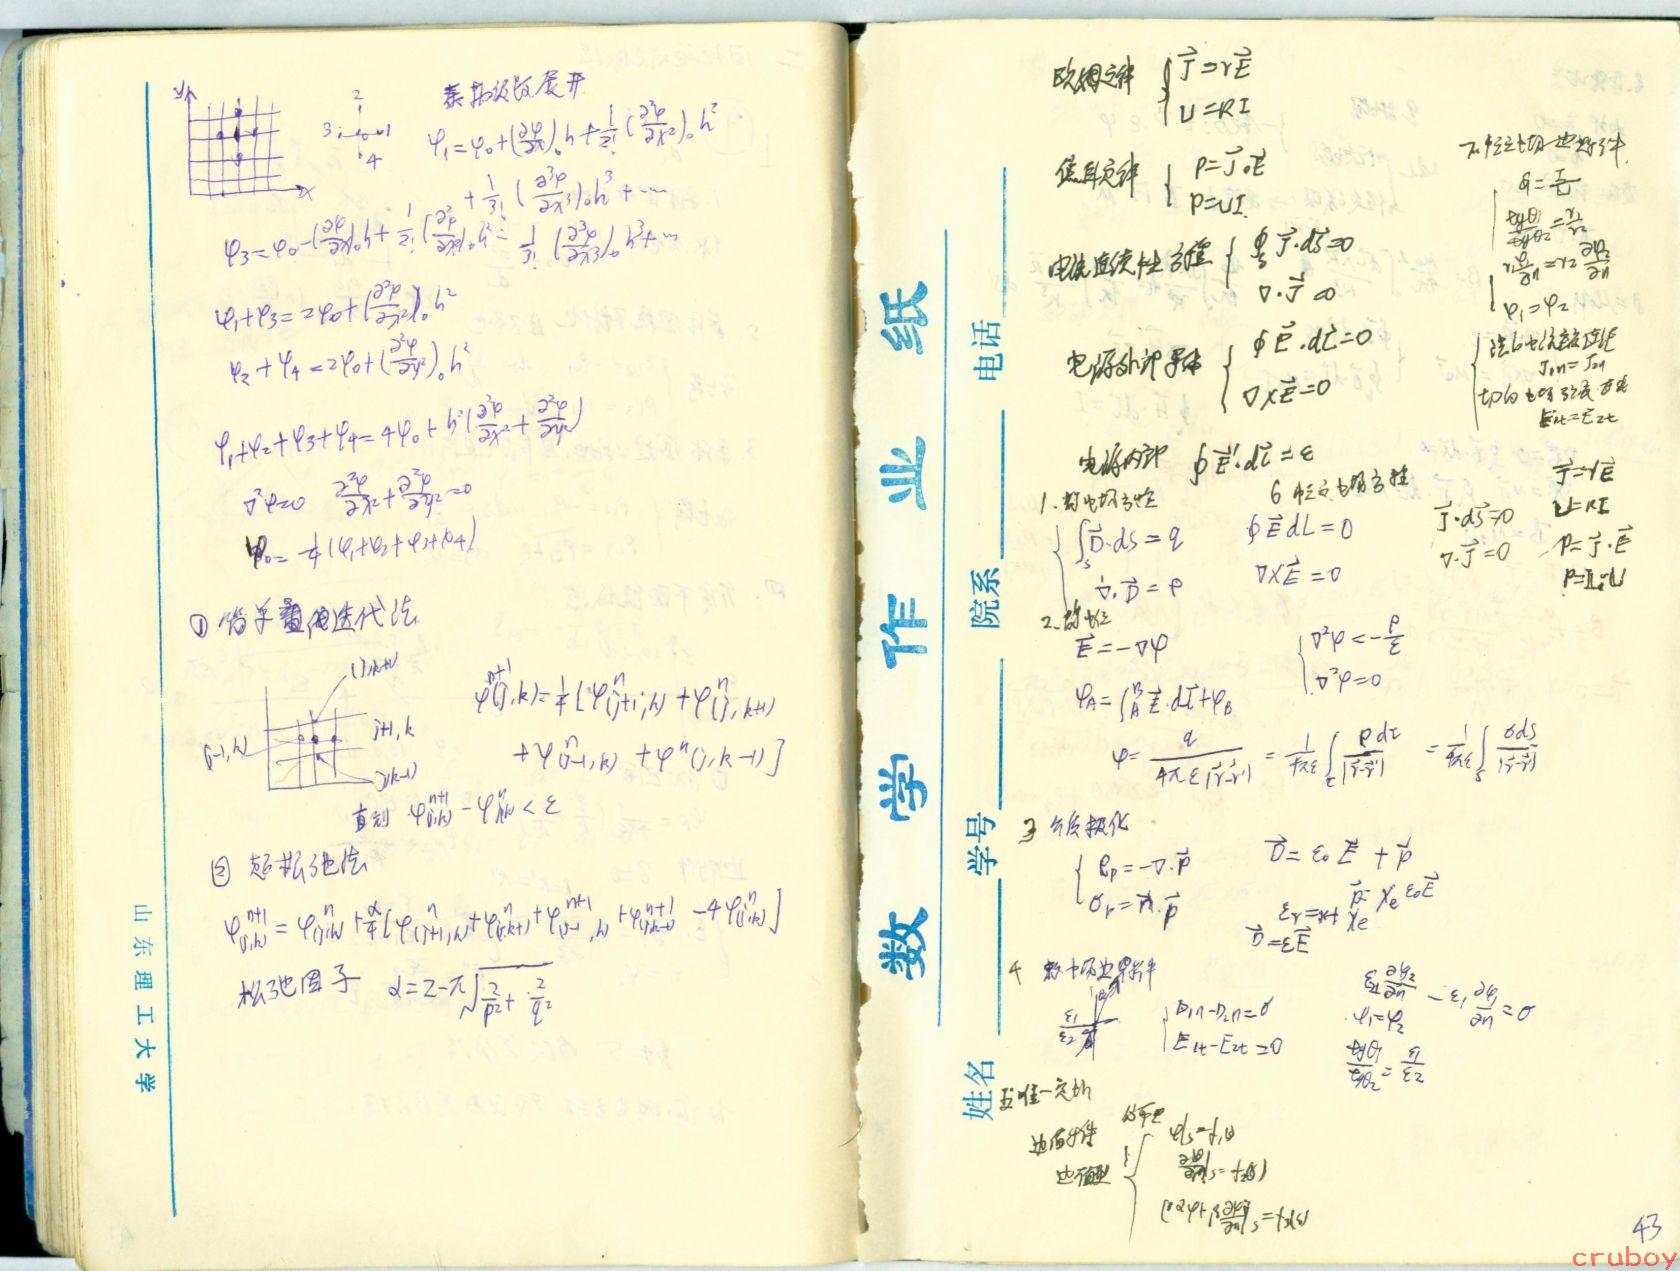 泰勒级数展开
y
x
2
3 0 1
4
φ₁=φ₀+(∂φ/∂x)₀h+1/2!(∂²φ/∂x²)₀h²
+1/3!(∂³φ/∂x³)₀h³+…
φ₃=φ₀-(∂φ/∂x)₀h+1/2!(∂²φ/∂x²)₀h²-1/3!(∂³φ/∂x³)₀h³+…
φ₁+φ₃=2φ₀+(∂²φ/∂x²)₀h²
φ₂+φ₄=2φ₀+(∂²φ/∂y²)₀h²
φ₁+φ₂+φ₃+φ₄=4φ₀+h²(∂²φ/∂x²+∂²φ/∂y²)
∇²φ=0 ∂²φ/∂x²+∂²φ/∂y²=0
φ₀=1/4(φ₁+φ₂+φ₃+φ₄)
① 简单迭代法
(j,k+1)
(j-1,k)
j+1,k
j(k-1)
φⁿ⁺¹(j,k)=1/4[φⁿ(j+1,k)+φⁿ(j,k+1)
+φⁿ(j-1,k)+φⁿ(j,k-1)]
直到 φⁿ⁺¹(j,k)-φⁿ(j,k)<ε
② 超松弛法
φⁿ⁺¹(j,k)=φⁿ(j,k)+α/4[φⁿ(j+1,k)+φⁿ(j,k+1)+φⁿ⁺¹(j-1,k)+φⁿ⁺¹(j,k-1)-4φⁿ(j,k)]
松弛因子 α=2-π√(2/p²+2/q²)
山东理工大学
数学作业纸
姓名 学号 院系 电话
欧姆定律 J⃗=γE⃗
U=RI
焦耳定律 P=J⃗·E⃗
P=UI
电流连续性方程 ∮ₛJ⃗·dS⃗=0
∇·J⃗=0
电源外 导体 ∮E⃗·dL⃗=0
∇×E⃗=0
电源内部 ∮E⃗'·dL⃗=ε
7. 恒定电场边界条件
tgθ₁/tgθ₂=γ₁/γ₂
γ₁∂φ₁/∂n=γ₂∂φ₂/∂n
φ₁=φ₂
法向电流密度连续
J₁n=J₂n
切向电场强度连续
E₁t=E₂t
1. 静电场方程
∫ₛD⃗·dS=q ∮E⃗dL=0
∇·D⃗=ρ ∇×E⃗=0
6 恒定电场方程
J⃗·dS⃗=0
∇·J⃗=0
J⃗=γE⃗
U=RI
P=J⃗·E⃗
P=I·U
2. 静电位
E⃗=-∇φ
∇²φ=-ρ/ε
∇²φ=0
φ_A=∫_A^B E⃗·dL⃗+φ_B
φ=q/(4πε|r⃗-r⃗'|)=1/(4πε)∫ρdτ/|r⃗-r⃗'|=1/(4πε)∫ₛσds/|r⃗-r⃗'|
3 介质极化
ρp=-∇·P⃗
σp=n⃗·P⃗
D⃗=ε₀E⃗+P⃗
P⃗=χₑε₀E⃗
εr=1+χₑ
D⃗=εE⃗
4 静电场边界条件
ε₁
ε₂
D₁n-D₂n=σ
E₁t-E₂t=0
ε₂∂φ₂/∂n-ε₁∂φ₁/∂n=σ
φ₁=φ₂
tgθ₁/tgθ₂=ε₁/ε₂
5 唯一定
边值条件
φ|s=f₁(s)
∂φ/∂n|s=f₂(s)
(αφ+β∂φ/∂n)|s=f₃(s)
43
cruboy